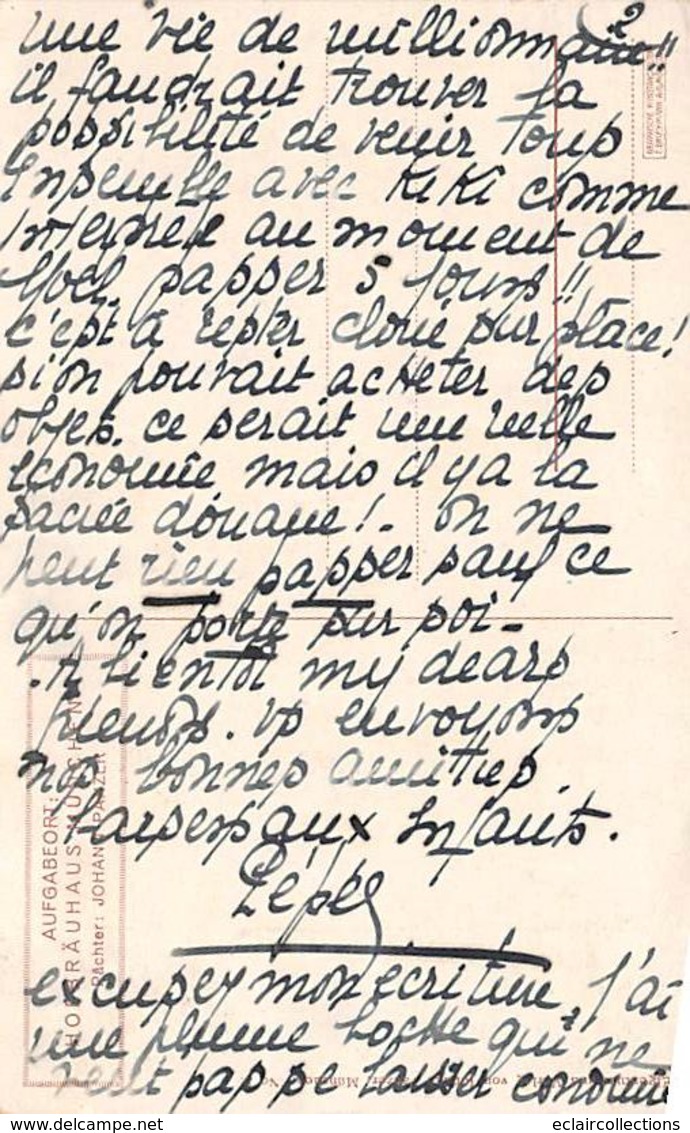 2
une vie de millionnaire!!
il faudrait trouver la
possibilité de venir tous
Ensemble avec KiKi comme
interprète au moment de
Noel. passer 5 jours!!
c'est à rester cloué sur place!
si on pouvait acheter des
objets. ce serait une réelle
économie mais il y a la
sacrée douane!- on ne
peut rien passer sauf ce
qu'on porte sur soi-
A bientot my dears
friends. vs envoyons
nos bonnes amitiés.
Caresses aux Enfants.
excusez mon écriture, j'ai
une plume boche qui ne
veut pas se laisser conduire
AUFGABEORT:
HOFBRÄUHAUS MÜNCHEN
Pächter: JOHANN PANZER
eclaircollections